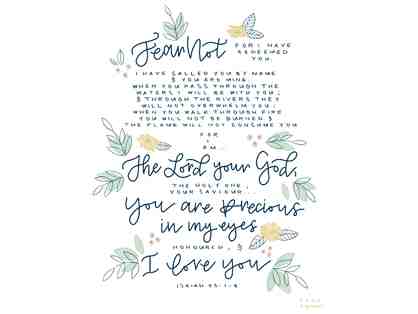 Fear Not FOR I HAVE
REDEEMED
YOU.
I HAVE CALLED YOU BY NAME
& YOU ARE MINE.
WHEN YOU PASS THROUGH THE
WATERS I WILL BE WITH YOU;
& THROUGH THE RIVERS THEY
WILL NOT OVERWHELM YOU.
WHEN YOU WALK THROUGH FIRE
YOU WILL NOT BE BURNED &
THE FLAME WILL NOT CONSUME YOU
FOR
I
AM...
The Lord your God,
THE HOLY ONE,
YOUR SAVIOUR...
You are Precious
in my eyes
HONOURED, &
I love you